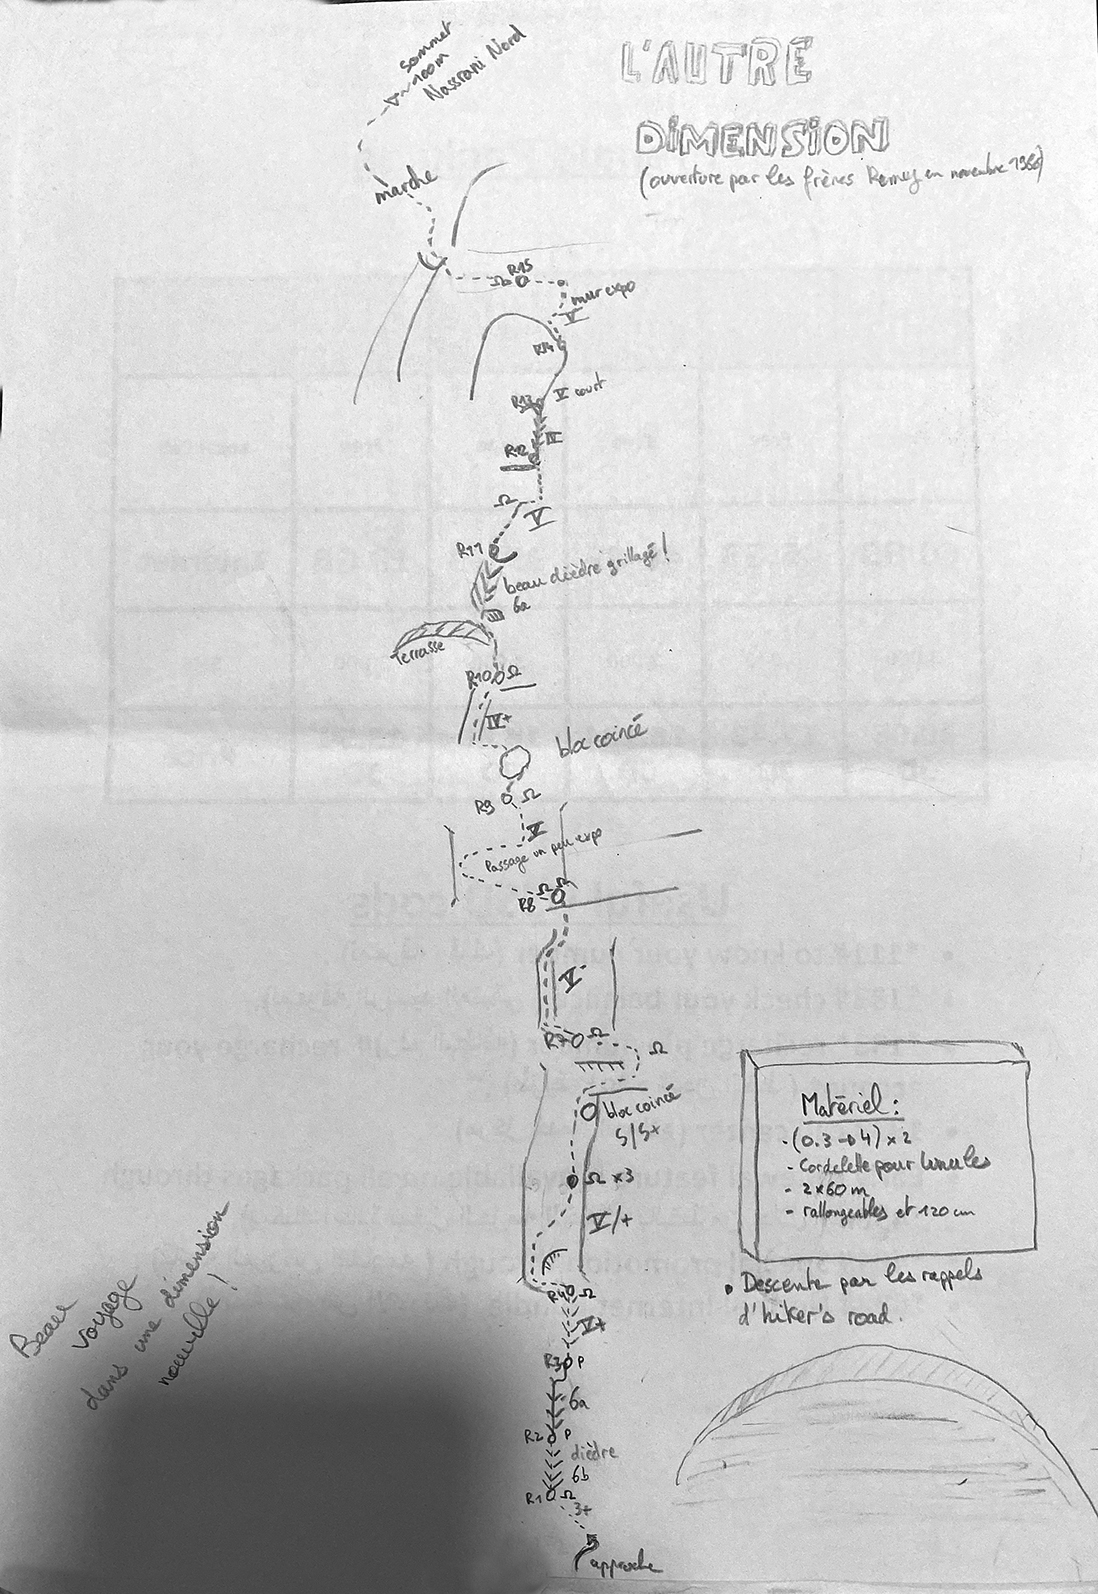 sommet
~100m
Nassrani Nord
L'AUTRE
DIMENSION
(ouverture par les frères Remy en novembre 1986)
marche
R15
mur expo
V
R14
V court
R13
IV
R12
Ω
V
R11
beau dièdre grillagé !
6a
Terrasse
R10 Ω
IV+
bloc coincé
R9 Ω
V
Passage un peu expo
Ω Ω
R8
V-
R7 Ω
Ω
bloc coincé
5/5+
Ω x3
V/+
R4 Ω
V+
R3 P
6a
R2 P
dièdre
6b
R1 Ω
3+
approche
Matériel :
- (0.3 → 4) x 2
- Cordelette pour lunules
- 2x60 m
- rallongeables et 120 cm
• Descente par les rappels
d'hiker's road.
Beau
voyage
dans une dimension
nouvelle !
Useful
• *111# to know your number
check your
recharge your